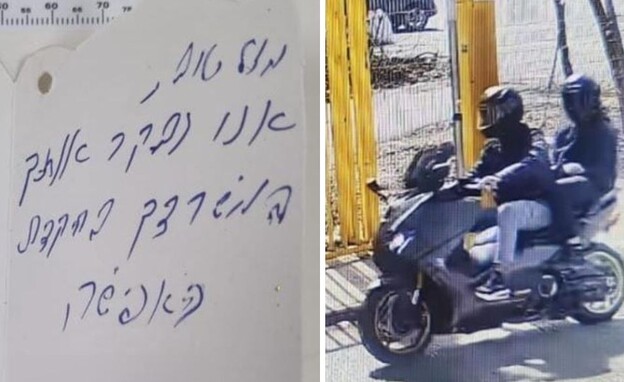 50 55 60 65 70
מזל טוב,
אנו נבקר אותך
במשרדך בהקדם
האפשרי